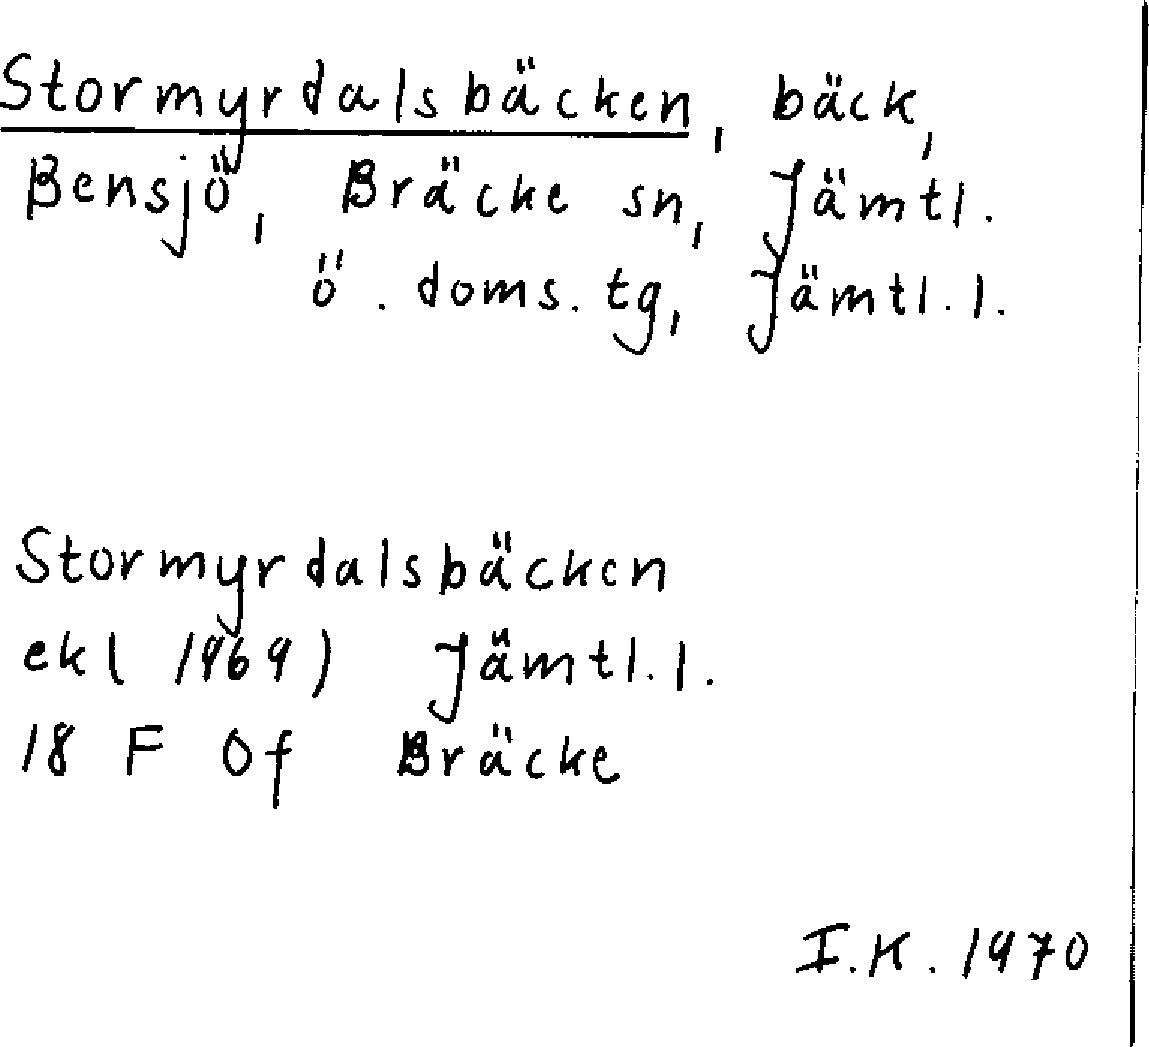 Stormyrdalsbäcken, bäck,
Bensjö, Bräcke sn, Jämtl.
ö. doms. tg, Jämtl. l.
Stormyrdalsbäcken
ekl 1969) Jämtl. l.
18 F 0f Bräcke
I.K. 1970